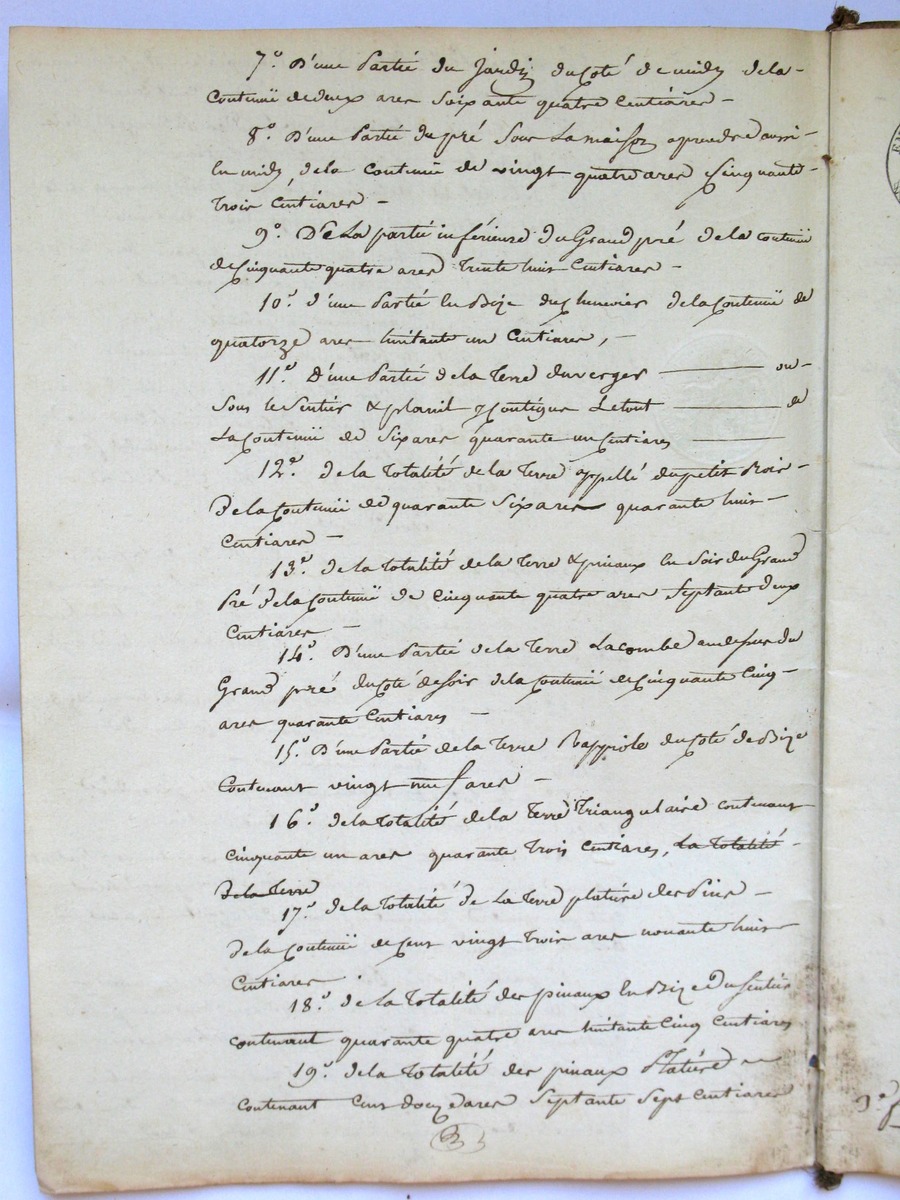 7.º D'une Partie du Jardin du Coté de midy dela -
Contenuë de deux ares Soixante quatre Centiares -
8.º D'une Partie du pré Sous La maison a prendre aussi -
en midy, de la Contenuë de vingt quatre ares Cinquante -
trois Centiares -
9.º De La partie inférieure du Grand pré de la Contenuë
de Cinquante quatre ares trente huit Centiares -
10.º d'une Partie en Bize du chenevier de la Contenuë de
quatorze ares huitante un Centiares, -
11.º D'une Partie de la Terre du verger ou -
Sous le Sentier & Contigus Le tout de
La Contenuë de Six ares quarante un Centiares
12.º de la Totalité de la Terre appellé du petit -
De la Contenuë de quarante Six ares quarante huit -
Centiares -
13.º de la Totalité de la Terre & pinaux en Soir du Grand
Pré de la Contenuë de Cinquante quatre ares Septante deux
Centiares -
14.º D'une Partie de la Terre Lacombe au dessus du
Grand pré du Coté de Soir de la Contenuë de Cinquante Cinq -
ares quarante Centiares -
15.º D'une Partie de la Terre du Coté de Bize
Contenant vingt neuf ares -
16.º de la Totalité de la Terre Triangulaire contenant
Cinquante un ares quarante Trois Centiares, La Totalité -
De la Terre
17.º de la Totalité de La Terre platière des Pins -
de la Contenuë de Cent vingt Trois ares nonante huit
Centiares.
18.º de la Totalité des pinaux en Bize du Sentier
contenant quarante quatre ares huitante Cinq Centiares
19.º de la Totalité des pinaux Platière
contenant Cent douze ares Septante Sept Centiares